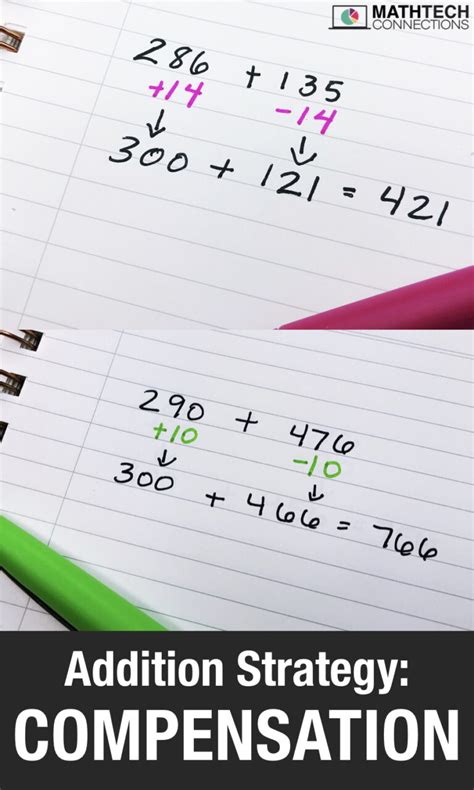 MATHTECH
CONNECTIONS
286 + 135
+14 -14
↓ ↓
300 + 121 = 421
290 + 476
+10 -10
↓ ↓
300 + 466 = 766
Addition Strategy:
COMPENSATION